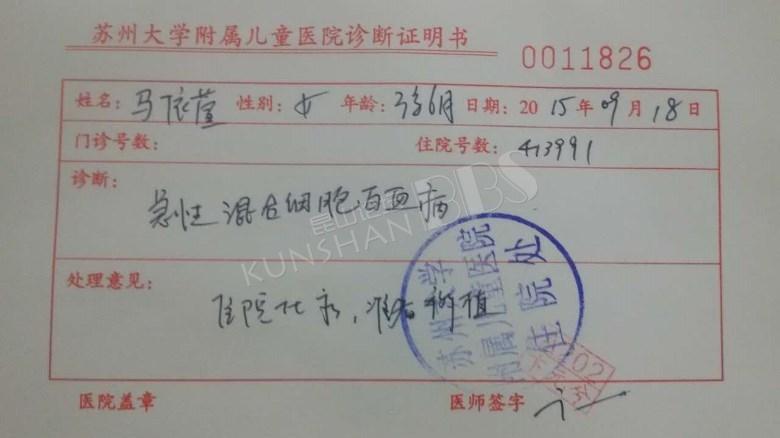 苏州大学附属儿童医院诊断证明书 0011826
姓名：马依萱 性别：女 年龄：3岁6月 日期：2015年09月18日
门诊号数： 住院号数：413991
诊断：
急性混合细胞白血病
昆山论坛 BBS
KUNSHAN
处理意见：
住院化疗，准备移植
苏州大学
附属儿童医院
住院处
医院盖章 医师签字